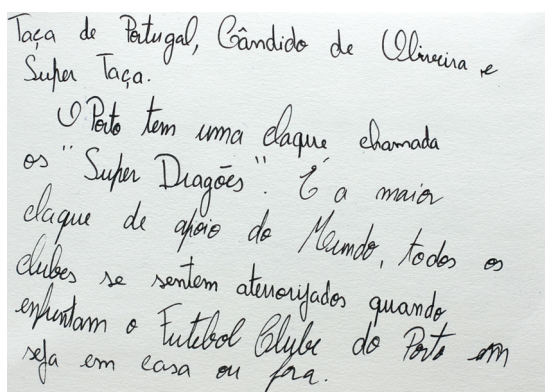 Taça de Portugal, Cândido de Oliveira e
Super Taça.
O Porto tem uma claque chamada
os "Super Dragões". É a maior
claque de apoio do Mundo, todos os
clubes se sentem aterrorizados quando
enfrentam o Futebol Clube do Porto em
seja em casa ou fora.